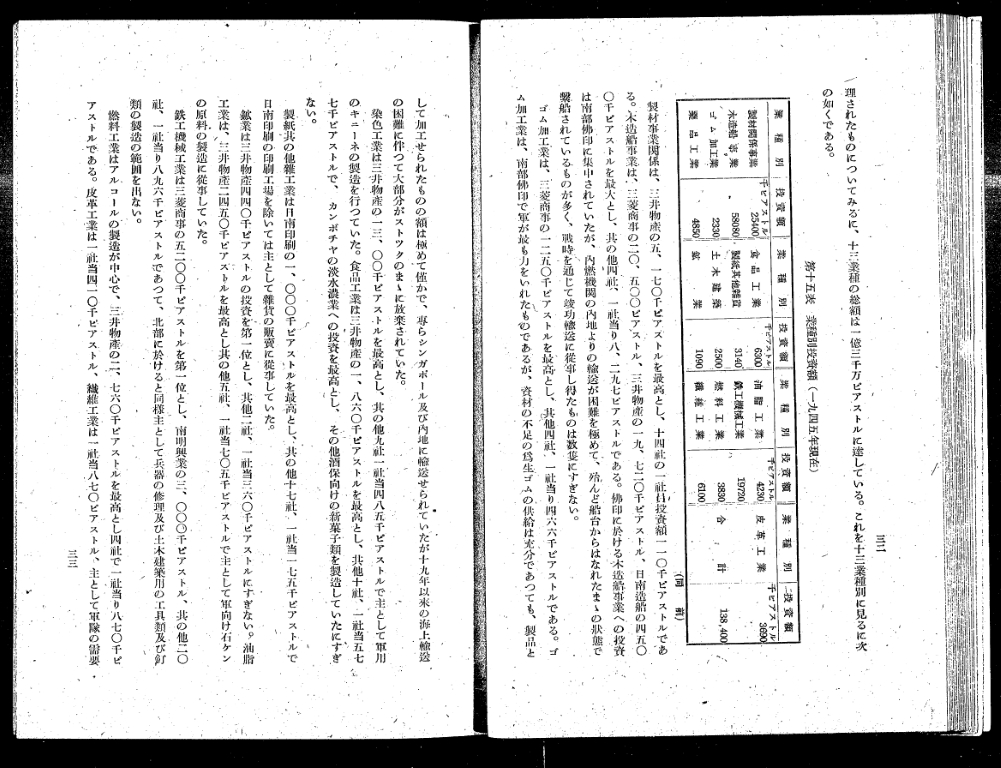 三二
理されたものについてみるに、十三業種の総額は一億三千万ピアストルに達している。これを十三業種別に見るに次
の如くである。
第十五表　業種別投資額（一九四五年現在）
業種別　投資額　業種別　投資額　業種別　投資額　業種別　投資額
千ピアストル　千ピアストル　千ピアストル　千ピアストル
製材関係事業　25400　食品工業　6300　油脂工業　4230　皮革工業　3690
木造船事業　58080　製紙其他雑貨　3140　鉄工機械工業　19720　合計　138,400
ゴム加工業　2330　土木建築　2500　燃料工業　3830
薬品工業　4850　鉱業　1090　繊維工業　6100
（同前）
製材事業関係は、三井物産の五、一七〇千ピアストルを最高とし、十四社の一社当投資額一一〇千ピアストルであ
る。木造船事業は、三菱商事の二〇、五〇〇千ピアストル、三井物産の一九、七二〇千ピアストル、日南造船の四五〇
〇千ピアストルを最大とし、其の他四社、一社当り八、二九七ピアストルである。佛印に於ける木造船事業への投資
は南部佛印に集中されていたが、内燃機関の内地よりの輸送が困難を極めて、殆んど船台からはなれたまゝの状態で
繋船されているものが多く、戦時を通じて竣功輸送に従事し得たものは数隻にすぎない。
ゴム加工業は、三菱商事の一二五〇千ピアストルを最高とし、其他四社、一社当り四六六千ピアストルである。ゴ
ム加工業は、南部佛印で軍が最も力をいれたものであるが、資材の不足の為生ゴムの供給は充分であつても、製品と
して加工せられたものの額は極めて僅かで、専らシンガポール及び内地に輸送せられていたが十九年以来の海上輸送
の困難に伴つて大部分がストツクのまゝに放棄されていた。
染色工業は三井物産の一三、〇〇千ピアストルを最高とし、其の他九社一社当四八五千ピアストルで主として軍用
のキニーネの製造を行つていた。食品工業は三井物産の一、八六〇千ピアストルを最高とし、其他十社、一社当五七
七千ピアストルで、カンボヂヤの淡水漁業への投資を最高とし、その他酒保向けの新菓子類を製造していたにすぎ
ない。
製紙其の他雑工業は日南印刷の一、〇〇〇千ピアストルを最高とし、其の他十七社、一社当一七五千ピアストルで
日南印刷の印刷工場を除いては主として雑貨の販売に従事していた。
鉱業は三井物産四四〇千ピアストルの投資を第一位とし、其他二社、一社当三六〇千ピアストルにすぎない。油脂
工業は、三井物産二四五〇千ピアストルを最高とし其の他五社、一社当七〇五千ピアストルで主として軍向け石ケン
の原料の製造に従事していた。
鉄工機械工業は三菱商事の五二〇〇千ピアストルを第一位とし、南明興業の三、〇〇〇千ピアストル、其の他二〇
社、一社当り八九六千ピアストルであつて、北部に於けると同様主として兵器の修理及び土木建築用の工具類及び釘
類の製造の範囲を出ない。
燃料工業はアルコールの製造が中心で、三井物産の二、七六〇千ピアストルを最高とし四社で一社当り八七〇千ピ
アストルである。皮革工業は一社当四一〇千ピアストル、繊維工業は一社当八七〇ピアストル、主として軍隊の需要
三三